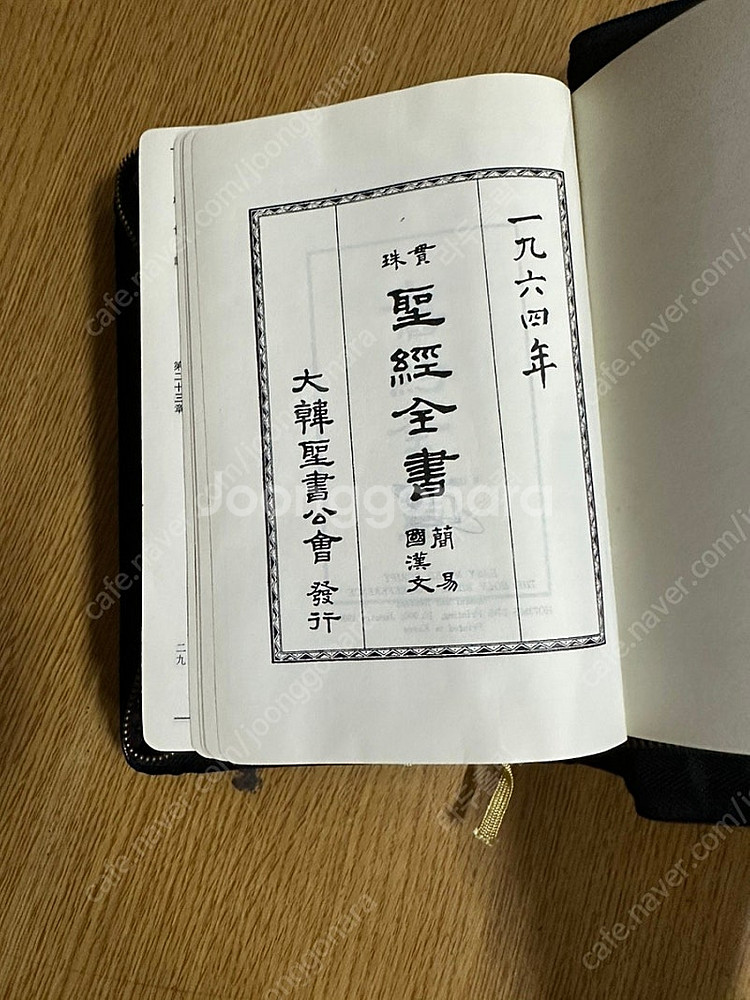 一九六四年
貫珠
聖經全書
簡易
國漢文
大韓聖書公會 發行
第二十三章
二九
Joonggonara
cafe.naver.com/joonggonara